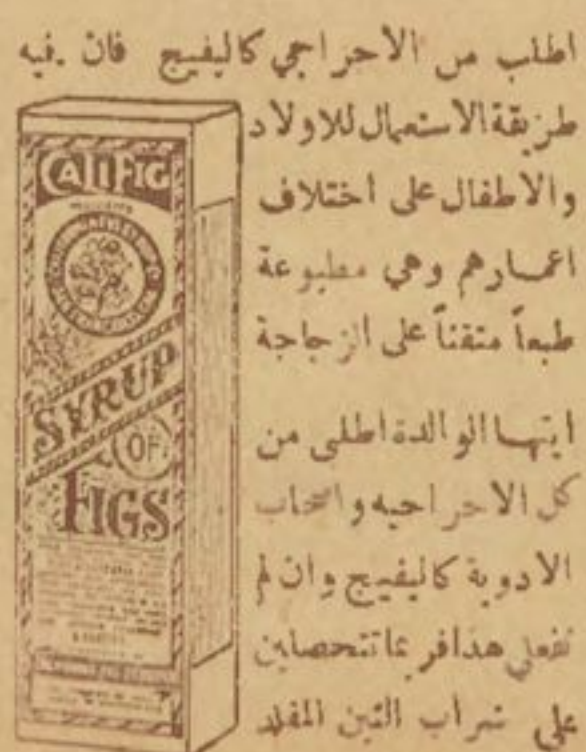 اطلب من الاجزاجي كاليفيج فان فيه
طريقة الاستعمال للاولاد
والاطفال على اختلاف
اعمارهم وهي مطبوعة
طبعاً متقناً على الزجاجة
ايتها الوالدة اطلبي من
كل الاجزاجيه واصحاب
الادوية كاليفيج وان لم
تفعلي هذا فربما تتحصلين
على شراب التين المقلد
CALIFIG
SYRUP
OF
FIGS